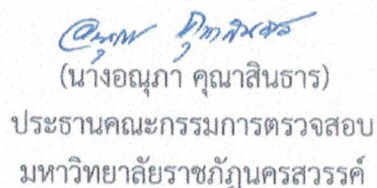 (นางอณุภา คุณาสินธาร)
ประธานคณะกรรมการตรวจสอบ
มหาวิทยาลัยราชภัฏนครสวรรค์